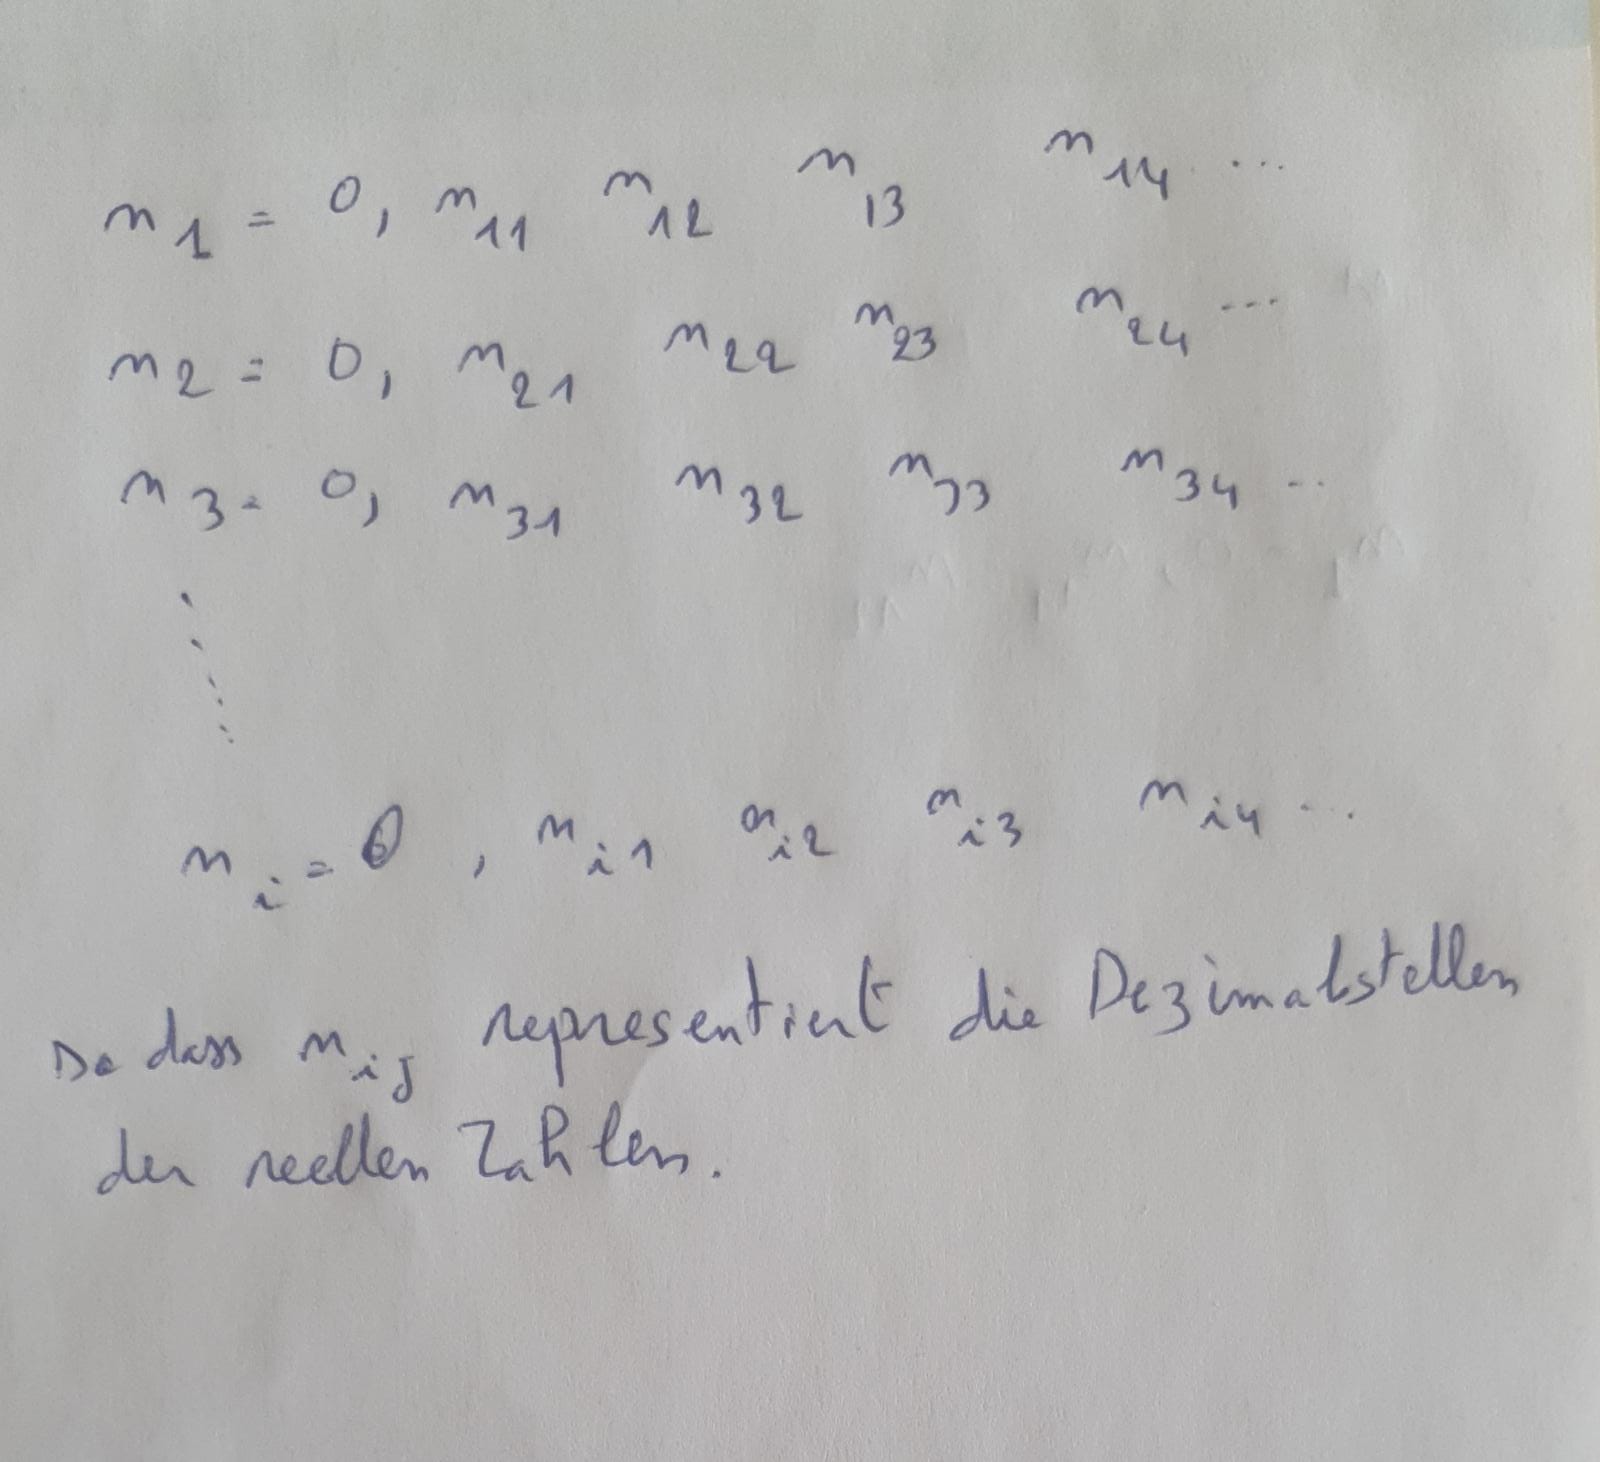 n₁ = 0, n₁₁ n₁₂ n₁₃ n₁₄ ...
n₂ = 0, n₂₁ n₂₂ n₂₃ n₂₄ ...
n₃ = 0, n₃₁ n₃₂ n₃₃ n₃₄ ..
n_i = 0, n_i1 n_i2 n_i3 n_i4 ...
So dass n_ij representiert die Dezimalstellen
der reellen Zahlen.